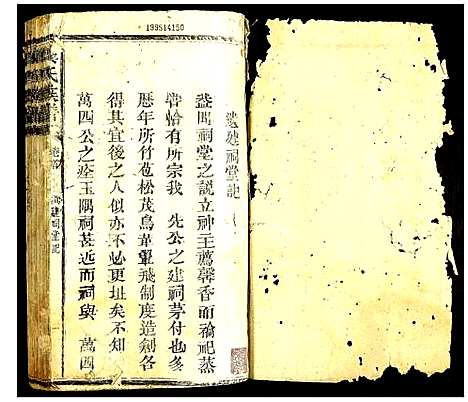 199814150
遷建祠堂記
蓋聞祠堂之說立神主薦馨香而禴祀蒸
甞恰有所宗我 先公之建祠茅付也多
歷年所竹苞松茂鳥革翬飛制度造剏各
得其宜後之人似亦不必更址矣不知
萬四公之瘞玉隅祠甚近而祠與 萬四
遷建祠堂記
一